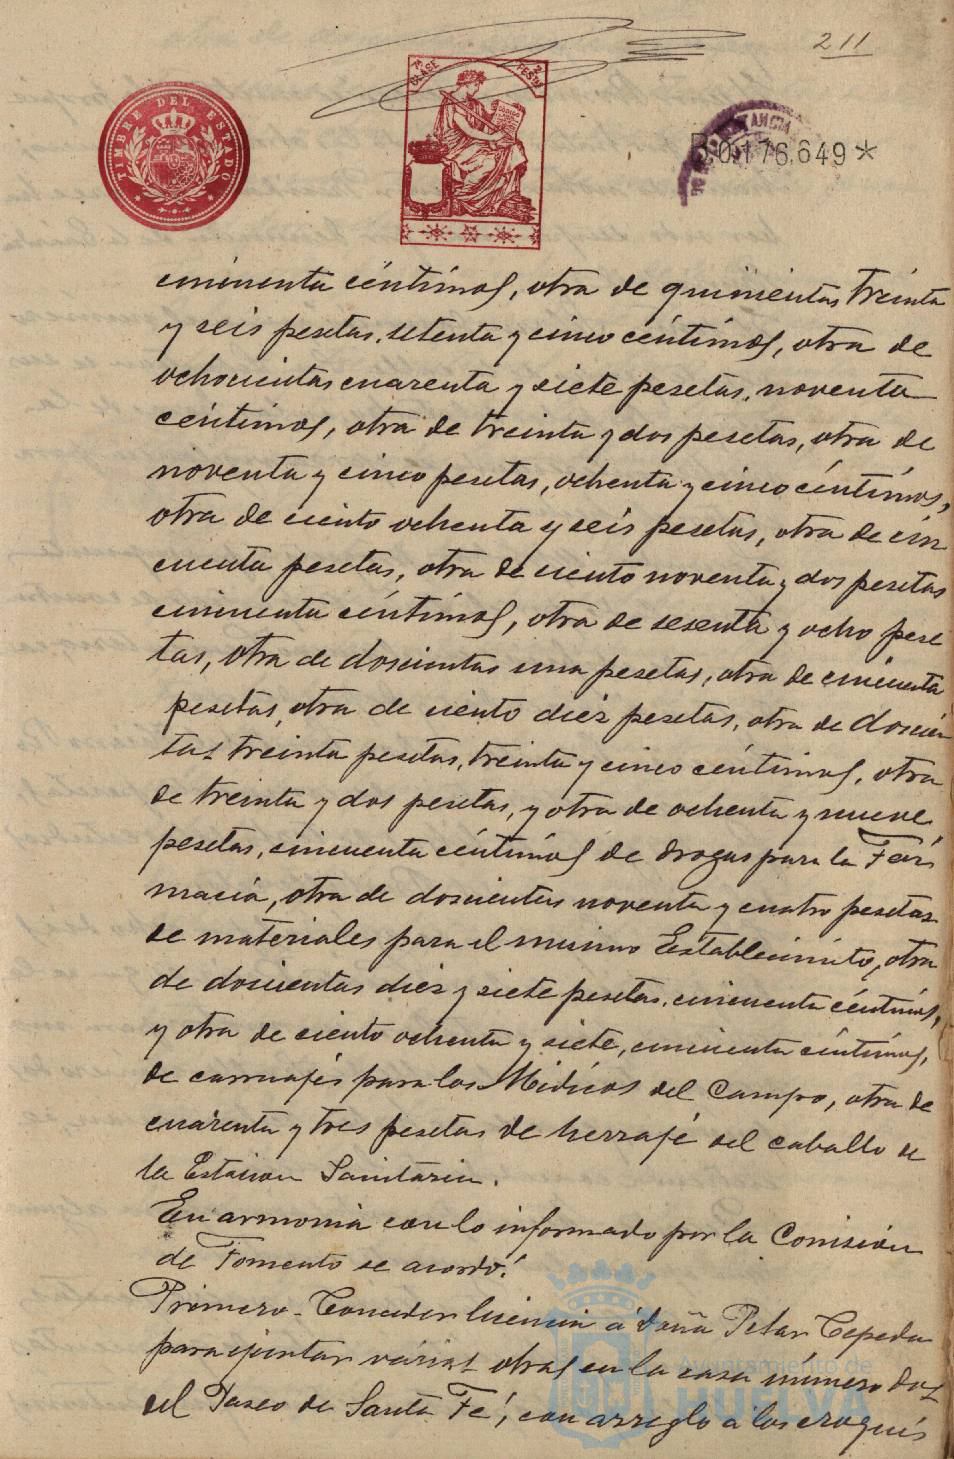 211
TIMBRE DEL ESTADO
7ª CLASE
B.0.176.649*
cincuenta céntimos, otra de quinientas treinta
y seis pesetas, setenta y cinco céntimos, otra de
ochocientas cuarenta y siete pesetas, noventa
céntimos, otra de treinta y dos pesetas, otra de
noventa y cinco pesetas, ochenta y cinco céntimos,
otra de ciento ochenta y seis pesetas, otra de cin
cuenta pesetas, otra de ciento noventa y dos pesetas
cincuenta céntimos, otra de sesenta y ocho pese
tas, otra de doscientas una pesetas, otra de cincuenta
pesetas, otra de ciento diez pesetas, otra de doscien
tas treinta pesetas, treinta y cinco céntimos, otra
de treinta y dos pesetas, y otra de ochenta y nueve
pesetas, cincuenta céntimos de drogas para la Far
macia, otra de doscientas noventa y cuatro pesetas
de materiales para el mismo Establecimiento, otra
de doscientas diez y siete pesetas, cincuenta céntimos,
y otra de ciento ochenta y siete, cincuenta céntimos,
de carruajes para los Médicos del Campo, otra de
cuarenta y tres pesetas de herraje del caballo de
la Estacion Sanitaria.
En armonia con lo informado por la Comisión
de Fomento se acordó:
Primero-Conceder licencia á doña Pilar Cepeda
para ejecutar varias obras en la casa número dos
del Paseo de Santa Fé, con arreglo á los croquis
Ayuntamiento de
HUELVA